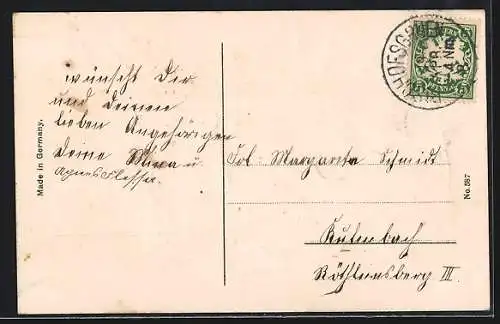 wünscht Dir
und Deinen
lieben Angehörigen
Deine Mina u.
Agnes Flessa.
Made in Germany.
Frl. Margareta Schmidt
Kulmbach
Röthleinsberg III.
No. 587
BAYERN
5 PFENNIG 5